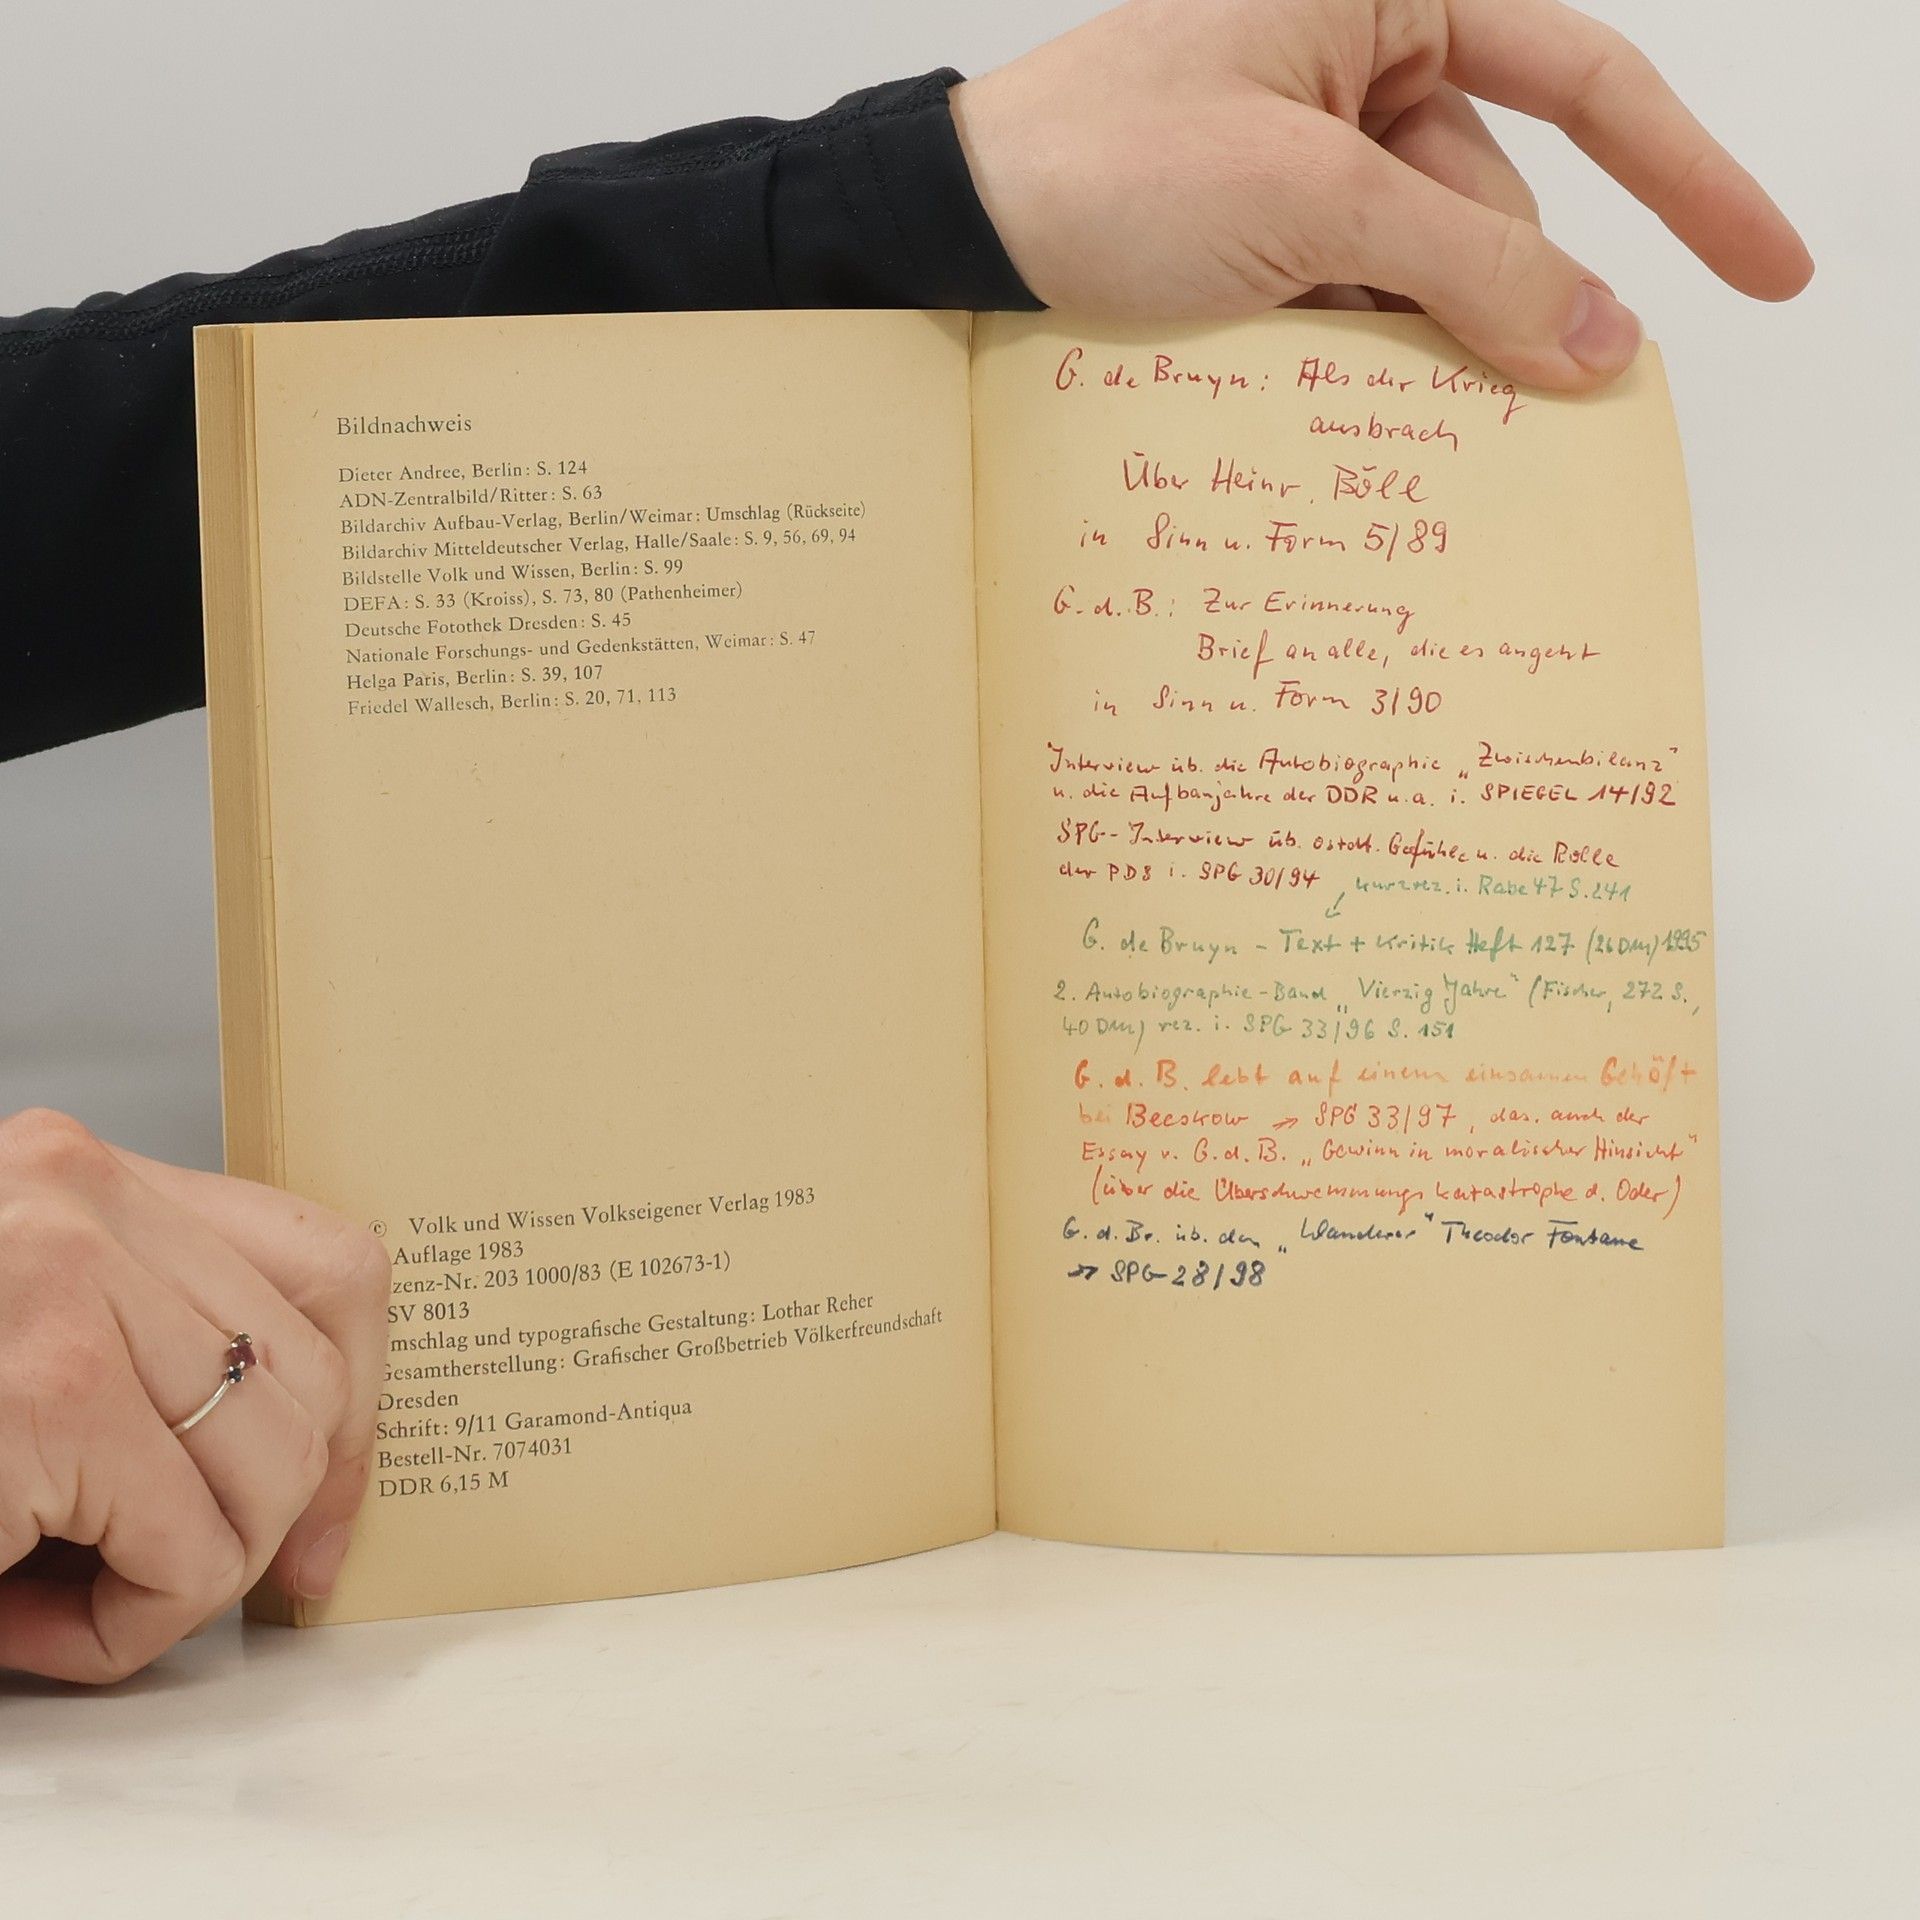 Bildnachweis
Dieter Andree, Berlin: S. 124
ADN-Zentralbild/Ritter: S. 63
Bildarchiv Aufbau-Verlag, Berlin/Weimar: Umschlag (Rückseite)
Bildarchiv Mitteldeutscher Verlag, Halle/Saale: S. 9, 56, 69, 94
Bildstelle Volk und Wissen, Berlin: S. 99
DEFA: S. 33 (Kroiss), S. 73, 80 (Pathenheimer)
Deutsche Fotothek Dresden: S. 45
Nationale Forschungs- und Gedenkstätten, Weimar: S. 47
Helga Paris, Berlin: S. 39, 107
Friedel Wallesch, Berlin: S. 20, 71, 113
© Volk und Wissen Volkseigener Verlag 1983
Auflage 1983
zenz-Nr. 203 1000/83 (E 102673-1)
SV 8013
mschlag und typografische Gestaltung: Lothar Reher
Gesamtherstellung: Grafischer Großbetrieb Völkerfreundschaft
Dresden
Schrift: 9/11 Garamond-Antiqua
Bestell-Nr. 7074031
DDR 6,15 M
G. de Bruyn: Als der Krieg
ausbrach
Über Heinr. Böll
in Sinn u. Form 5/89
G. d. B.: Zur Erinnerung
Brief an alle, die es angeht
in Sinn u. Form 3/90
Interview üb. die Autobiographie „Zwischenbilanz"
u. die Aufbaujahre der DDR u. a. i. SPIEGEL 14/92
SPG-Interview üb. ostdt. Gefühle u. die Rolle
der PDS i. SPG 30/94
kurzrez. i. Rabe 47 S. 241
G. de Bruyn - Text + Kritik Heft 127 (26 DM) 1995
2. Autobiographie-Band „Vierzig Jahre" (Fischer, 272 S.,
40 DM) rez. i. SPG 33/96 S. 151
G. d. B. lebt auf einem einsamen Gehöft
bei Beeskow → SPG 33/97, das. auch der
Essay v. G. d. B. „Gewinn in moralischer Hinsicht"
(über die Überschwemmungskatastrophe d. Oder)
G. d. Br. üb. den „Wanderer" Theodor Fontane
→ SPG 28/98